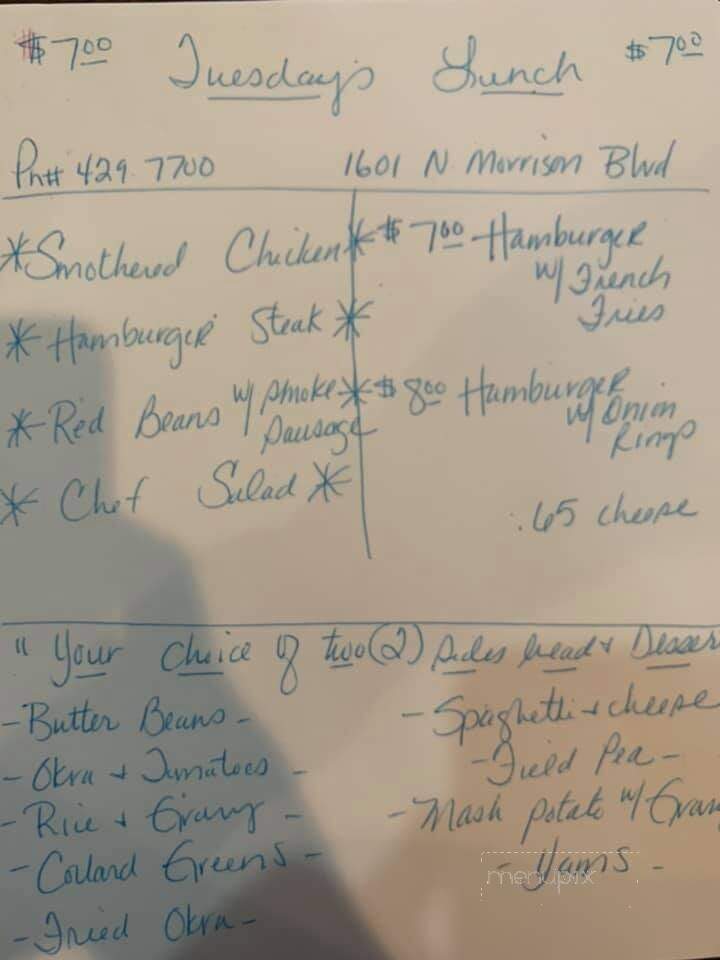 $7.00 Tuesday's Lunch $7.00
Ph# 429.7700 1601 N Morrison Blvd
*Smothered Chicken*
* Hamburger Steak *
* Red Beans w/ Smoke Sausage *
* Chef Salad *
$7.00 Hamburger
w/ French
Fries
$8.00 Hamburger
w/ Onion
Rings
.65 cheese
" Your Choice of two (2) sides bread & Desser
- Butter Beans -
- Okra & Tomatoes -
- Rice & Gravy -
- Collard Greens -
- Fried Okra -
- Spaghetti & cheese
- Field Pea -
- Mash potato w/ Grav
- Yams -
menupix